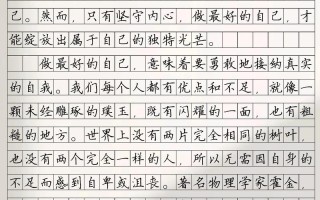 己。然而，只有坚守内心，做最好的自己，才
能绽放出属于自己的独特光芒。
做最好的自己，意味着要勇敢地接纳真实
的自我。我们每个人都有优点和不足，就像一
颗未经雕琢的璞玉，既有闪耀的一面，也有粗
糙的地方。世界上没有两片完全相同的树叶，
也没有两个完全一样的人，所以无需因自身的
不足而感到自卑或沮丧。著名物理学家霍金，